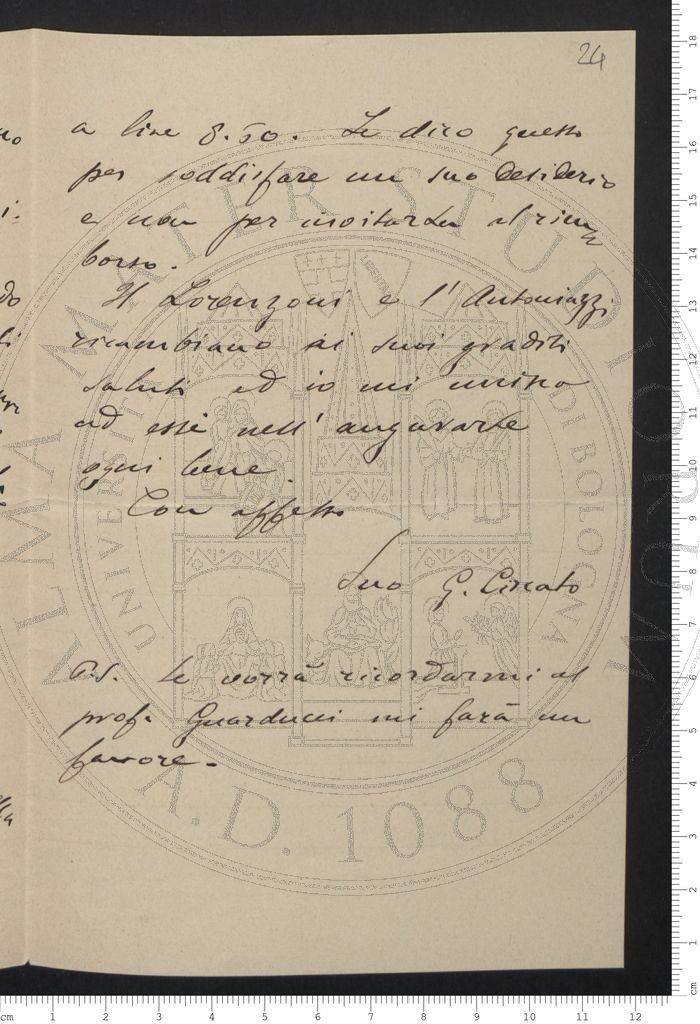 24
a lire 8.50. Le dico questo
per soddisfare un suo desiderio
e non per invitarla al rim-
borso.
Il Lorenzoni e l'Antoniazzi
ricambiano ai suoi graditi
saluti ed io mi unisco
ad essi nell'augurarle
ogni bene.
Con affetto
Suo G. Ciscato
P.S. Se vorrà ricordarmi al
prof. Guarducci mi farà un
favore.
ALMA MATER STUDIORUM
UNIVERSITÀ DI BOLOGNA
LIBERTAS
A.D. 1088